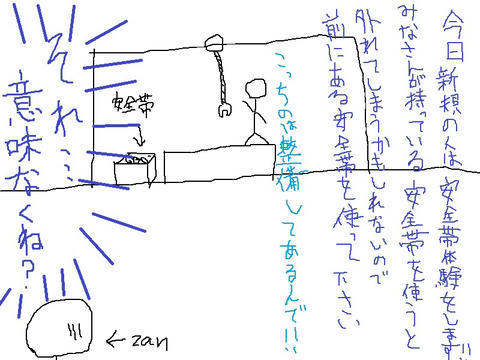 今日新規の人は安全帯体験をします!!
みなさんが持っている安全帯を使うと
外れてしまうかもしれないので
前にある安全帯を使って下さい
こっちのは整備してあるんで!!
安全帯
それ…
意味なくね?
←zan